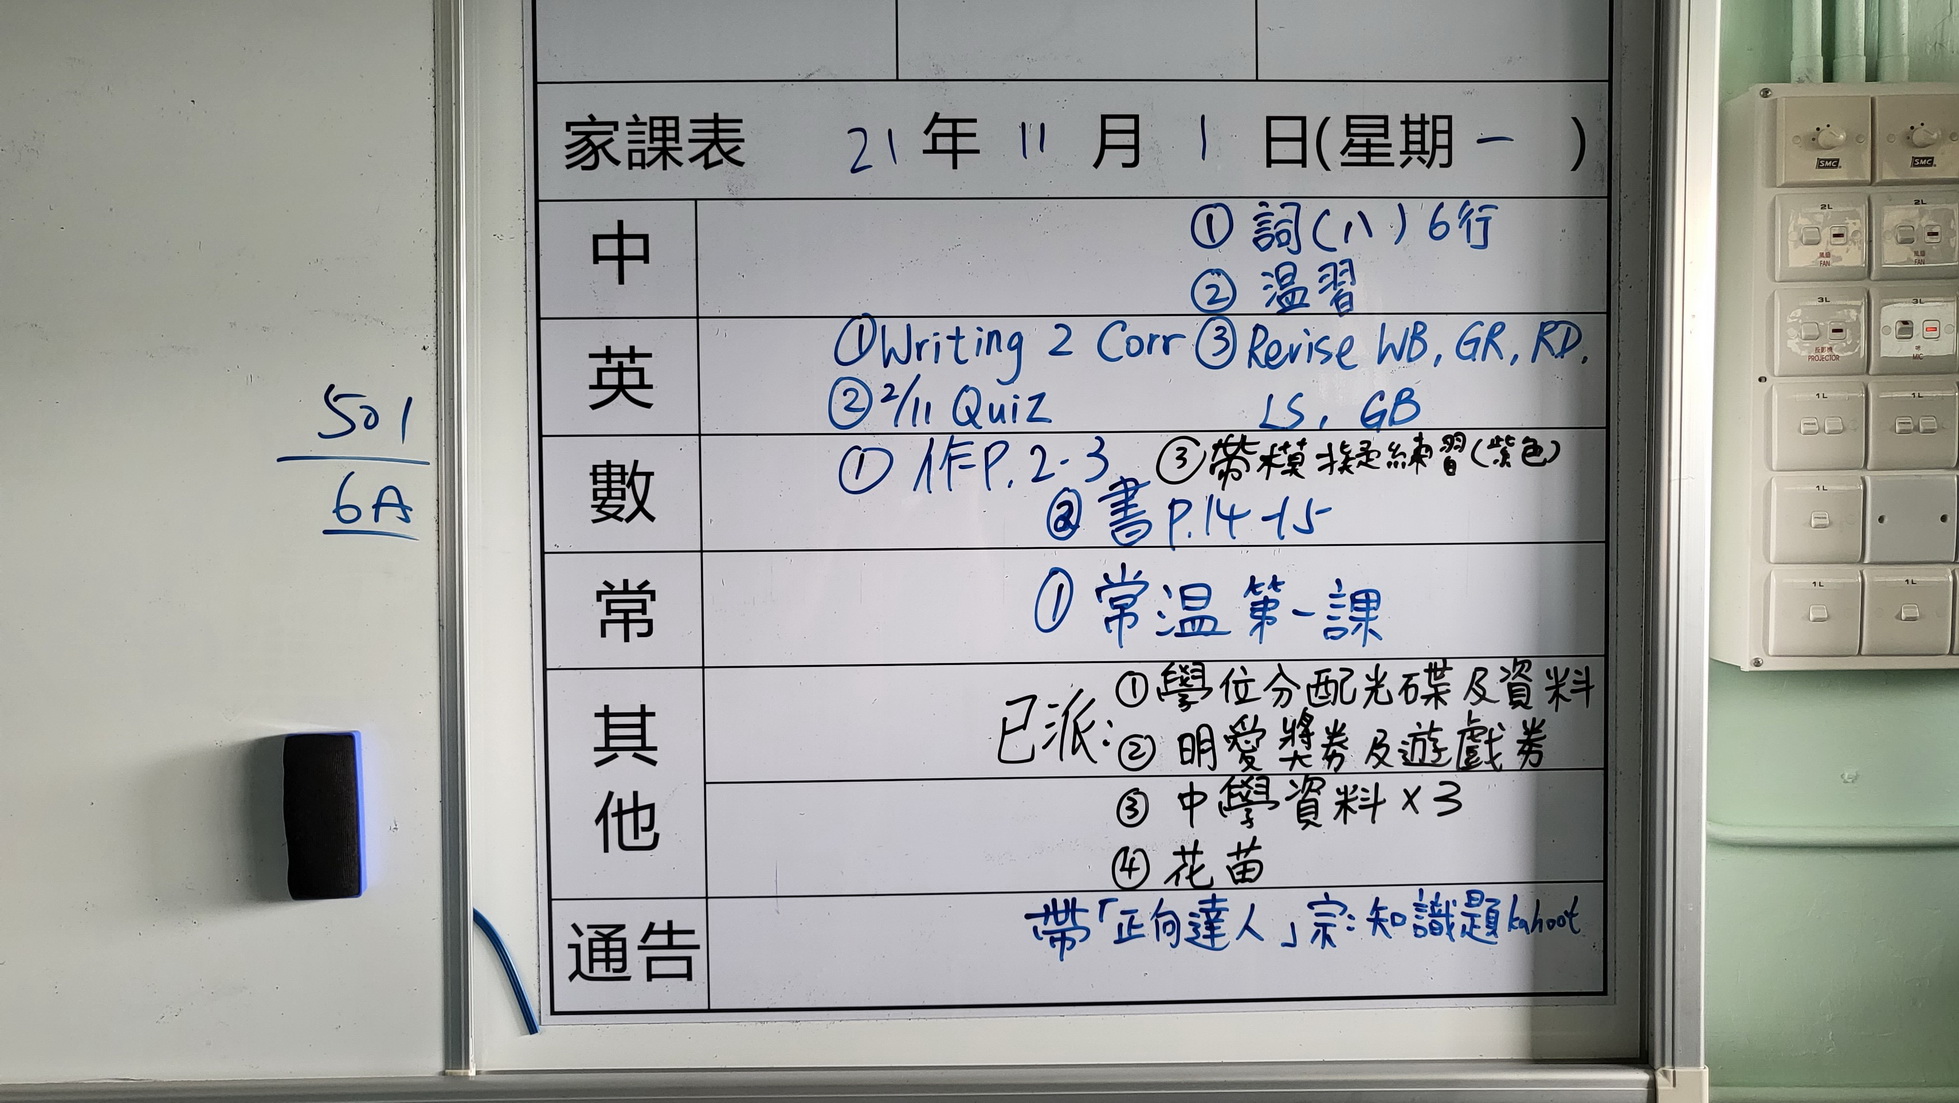 家課表 21年11月1日(星期一)
中
① 詞(八)6行
② 温習
英
①Writing 2 Corr ③Revise WB, GR, RD,
②2/11 Quiz LS, GB
數
① 作P.2-3 ③帶模擬練習(紫色)
② 書P.14-15
常
① 常温第一課
其他
已派:
①學位分配光碟及資料
② 明愛獎券及遊戲券
③ 中學資料×3
④ 花苗
通告
帶「正向達人」宗:知識題kahoot
501
6A
SMC SMC
2L 2L
風扇 FAN 風扇 FAN
3L 3L
投影機 PROJECTOR 咪 MIC
1L 1L
1L
1L 1L